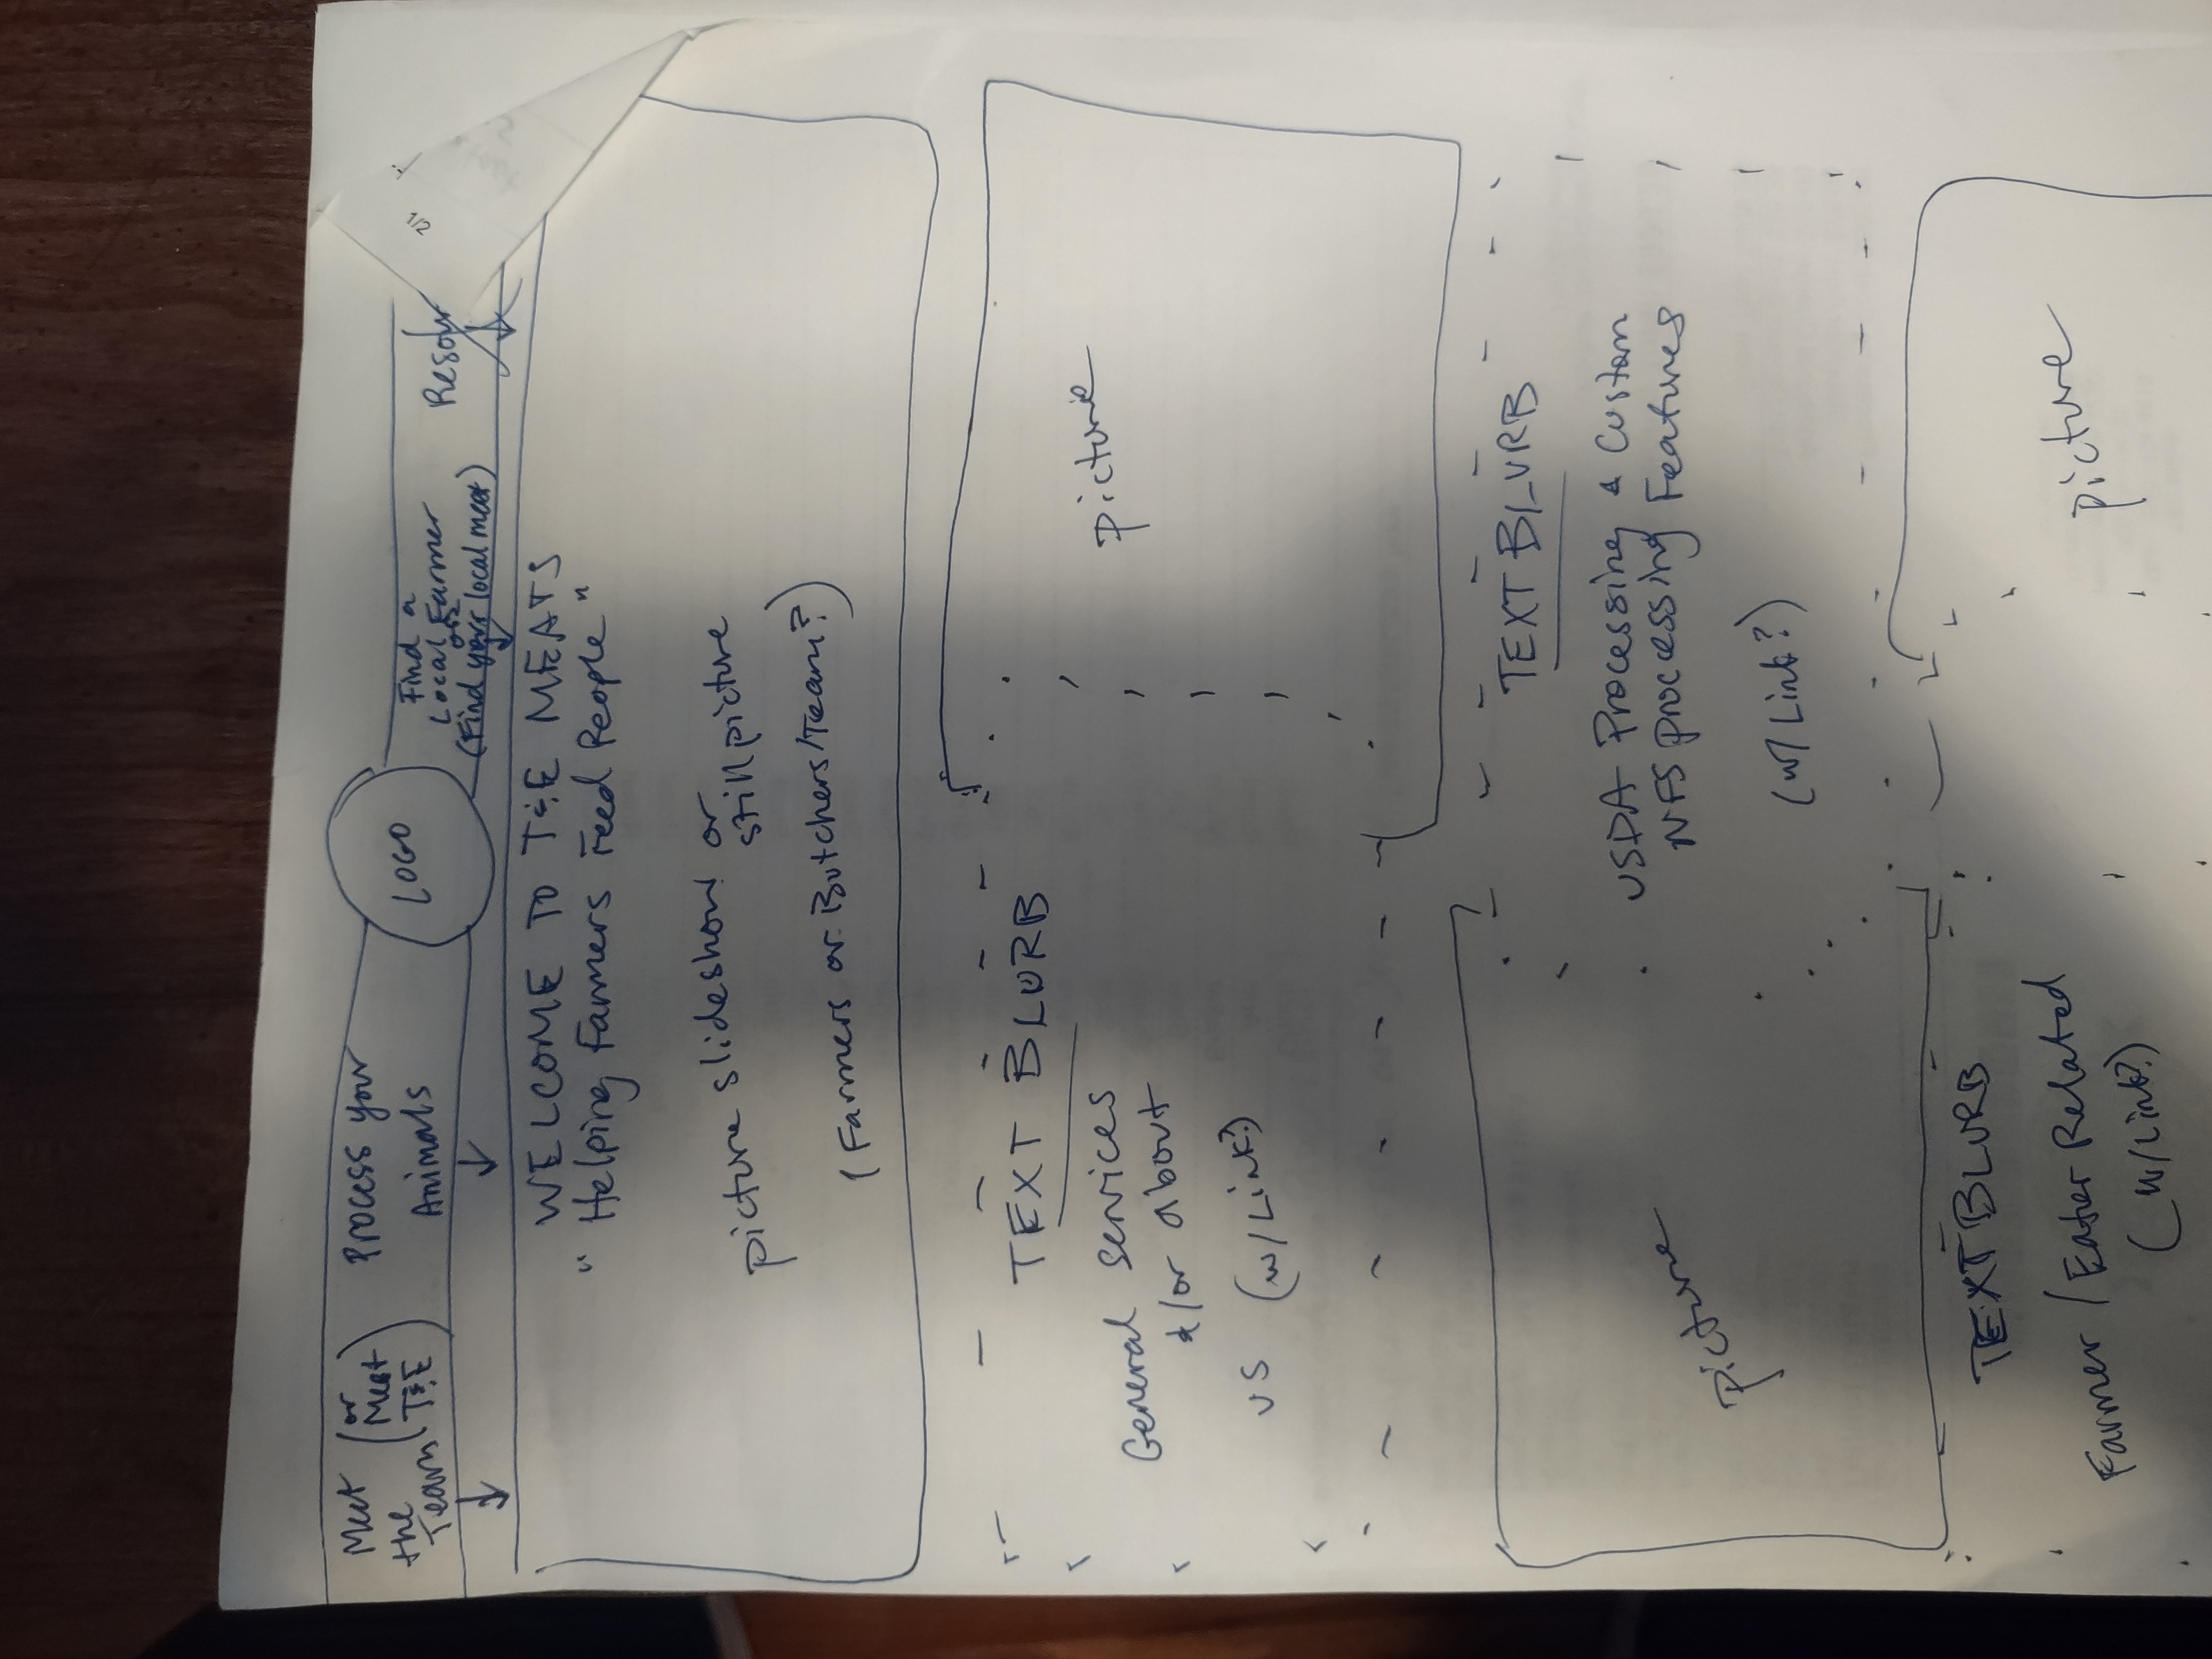 Meet the Team
(or Meet T&E)
Process your Animals
LOGO
Find a
Local Farmer
or
(Find your local meat)
Resour
1/2
WELCOME TO T&E MEATS
"Helping Farmers Feed People"
picture slideshow or
still picture
(Farmers or Butchers/Team?)
TEXT BLURB
General services
&/or about
us (w/Link?)
picture
TEXT BLURB
USDA Processing & Custom
NFS processing Features
(w/ Link?)
picture
TEXT BLURB
Farmer / Eater Related
(w/Link?)
picture